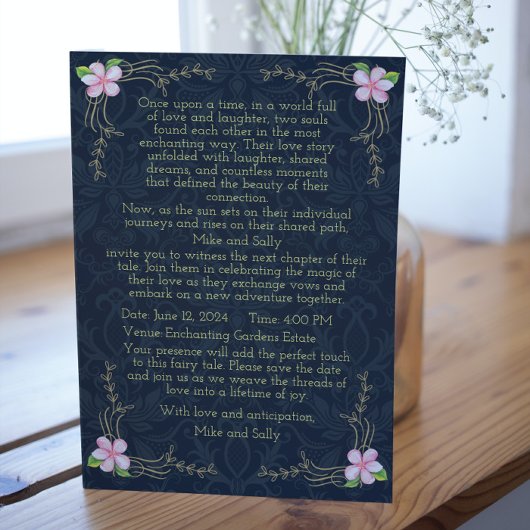 Once upon a time, in a world full
of love and laughter, two souls
found each other in the most
enchanting way. Their love story
unfolded with laughter, shared
dreams, and countless moments
that defined the beauty of their
connection.
Now, as the sun sets on their individual
journeys and rises on their shared path,
Mike and Sally
invite you to witness the next chapter of their
tale. Join them in celebrating the magic of
their love as they exchange vows and
embark on a new adventure together.
Date: June 12, 2024 Time: 4:00 PM
Venue: Enchanting Gardens Estate
Your presence will add the perfect touch
to this fairy tale. Please save the date
and join us as we weave the threads of
love into a lifetime of joy.
With love and anticipation,
Mike and Sally